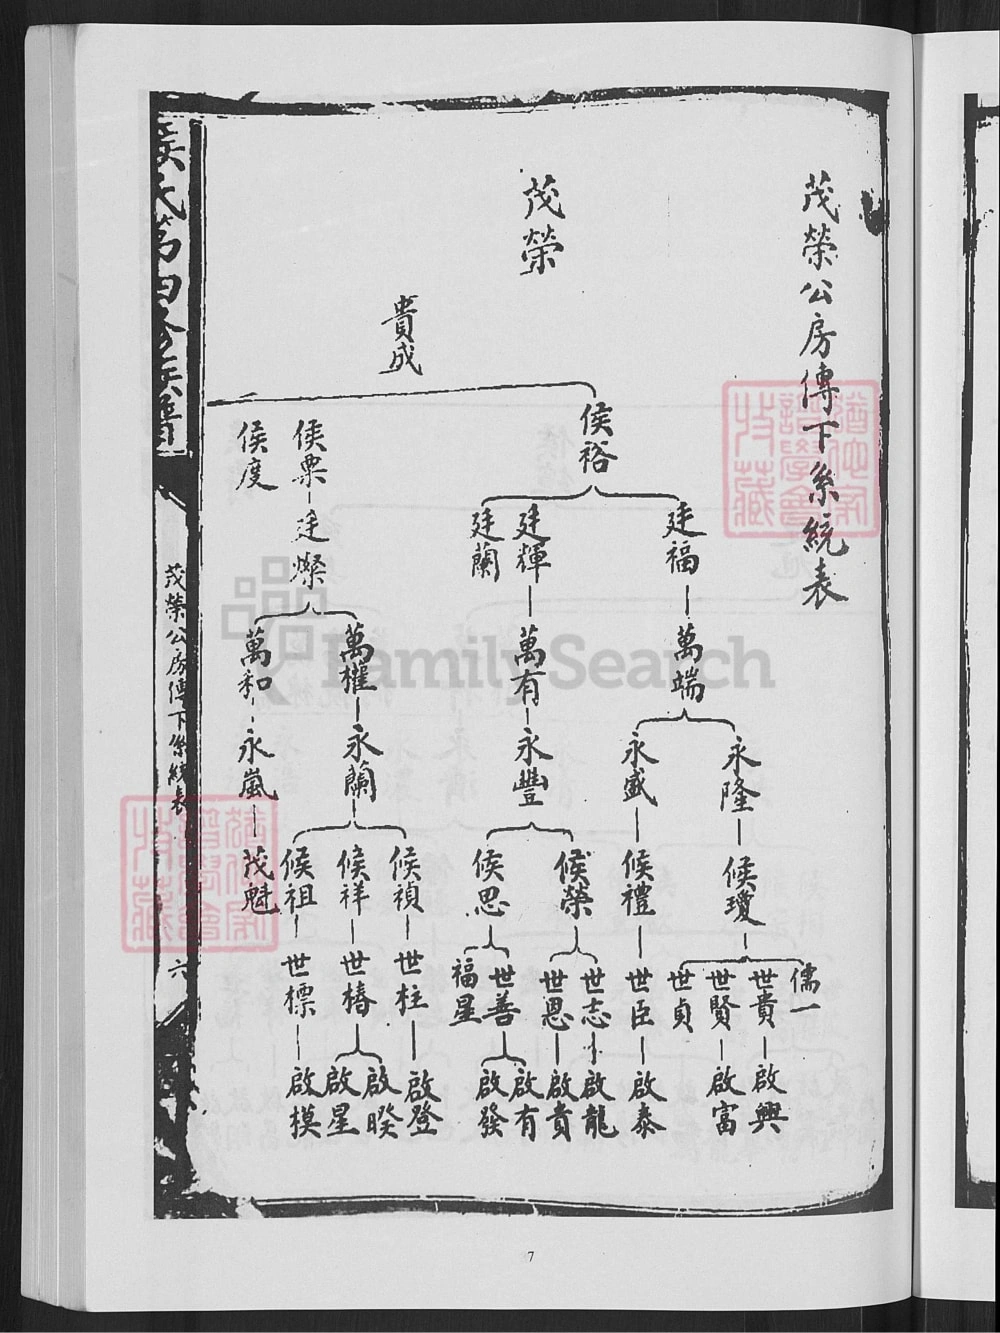 茂榮公房傳下系統表
茂榮
貴成
侯裕
侯栗
侯度
廷福
廷輝
廷蘭
廷燦
萬端
萬有
萬權
萬和
永隆
永盛
永豐
永蘭
永嵐
候瓊
候禮
侯榮
侯思
候禎
候祥
候祖
茂魁
儒一
世貴
世賢
世貞
世臣
世志
世恩
世善
福星
世柱
世椿
世標
啟興
啟富
啟泰
啟龍
啟貴
啟有
啟發
啟登
啟暌
啟星
啟模
茂榮公房傳下系統表
六
FamilySearch
7